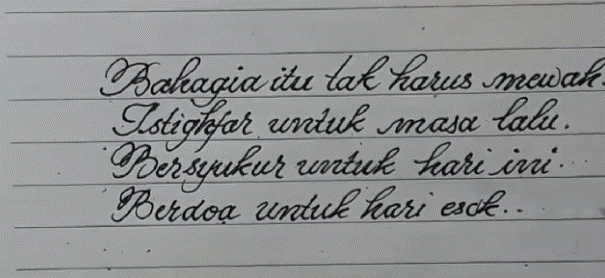 Bahagia itu tak harus mewah.
Istighfar untuk masa lalu.
Bersyukur untuk hari ini.
Berdoa untuk hari esok..